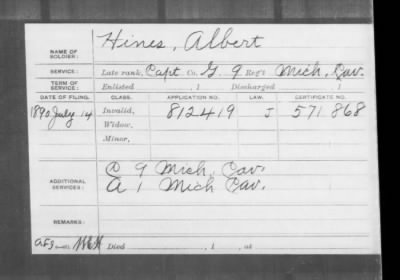 NAME OF SOLDIER: Hines, Albert
SERVICE: Late rank, Capt. Co. G. 9 Reg't Mich. Cav.
TERM OF SERVICE: Enlisted , 1 Discharged , 1
DATE OF FILING. CLASS. APPLICATION NO. LAW. CERTIFICATE NO.
1890 July 14 Invalid, 812419 J 571868
Widow,
Minor,
ADDITIONAL SERVICES: C 9 Mich. Cav.
A 1 Mich Cav.
REMARKS:
Died , 1 , at